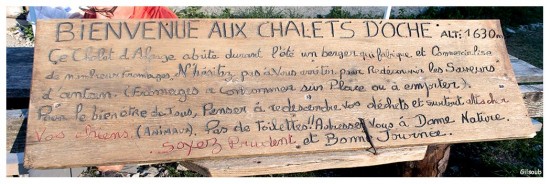 BIENVENUE AUX CHALETS D'OCHE ALT: 1630m
Ce Chalet d'Alpage abrite durant l'été un berger qui fabrique et Commercialise
de nombreux fromages, N'hésitez pas à Vous arrêter pour Redécouvrir les Saveurs
d'antan. (Fromages à Consommer sur Place ou à emporter).
Pour le bien être de Tous, Penser à redescendre Vos déchets et surtout attacher
Vos chiens. (ANIMAUX), Pas de Toilettes!! Adressez Vous à Dame Nature.
Soyez Prudent et Bonne Journée.
Gilsoub